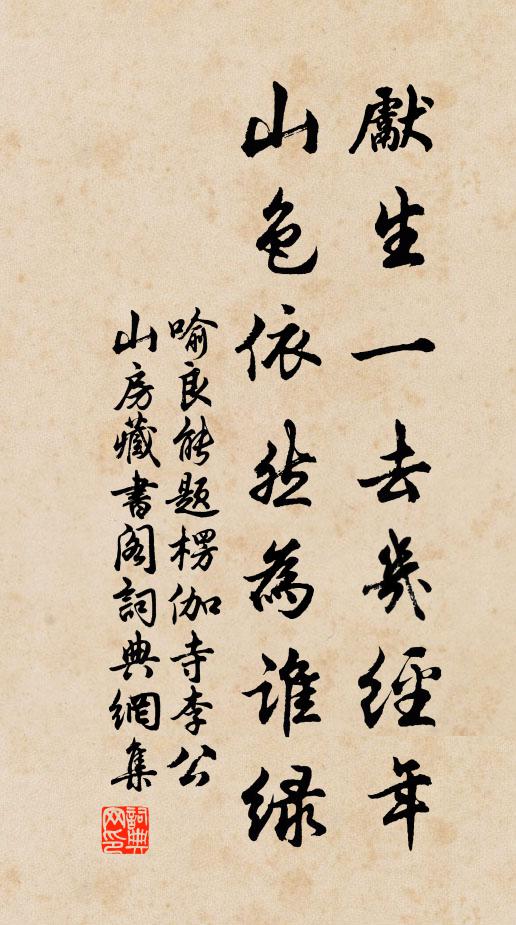 獻生一去幾經年
山色依然為誰綠
喻良能題楞伽寺李公
山房藏書閣詞典網集
詞典
网印